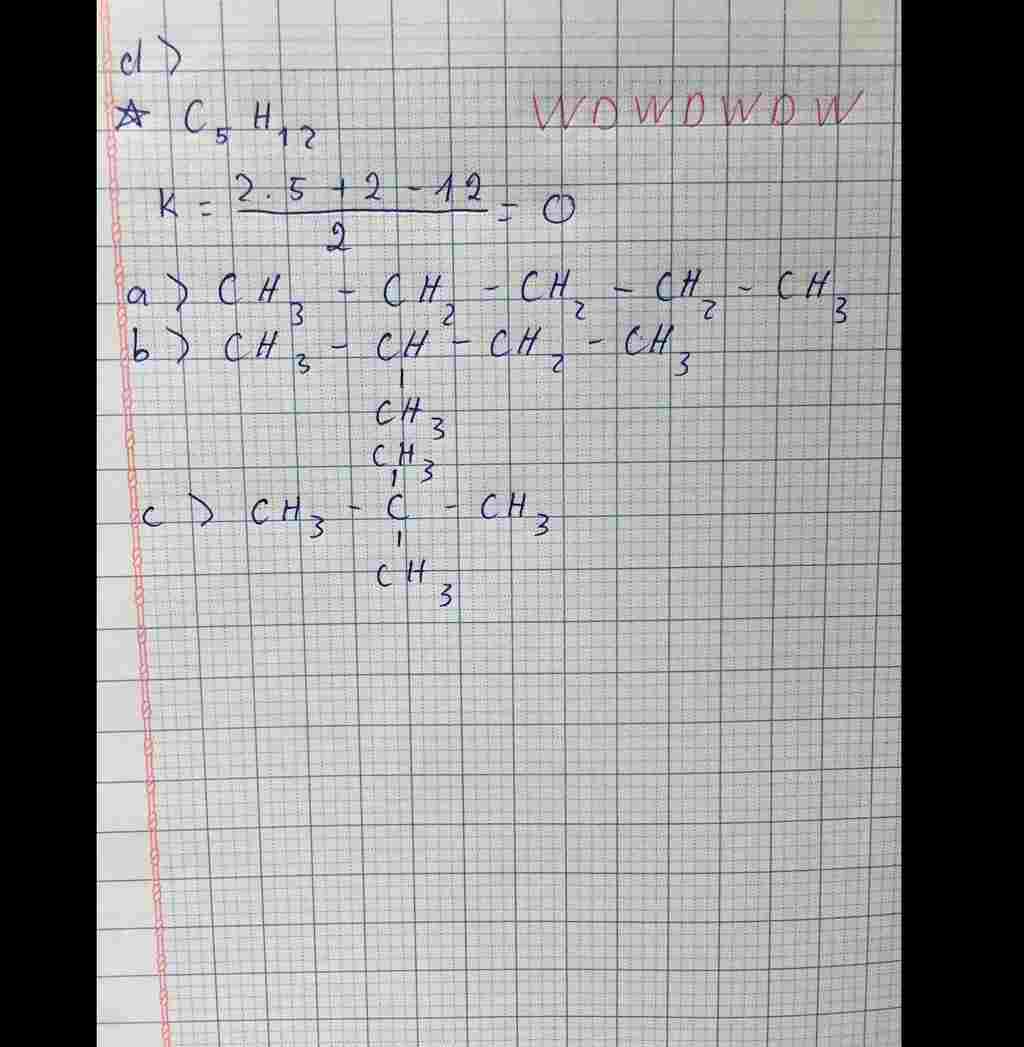 d)
☆ C₅H₁₂ WOWOWOW
K = (2.5 + 2 - 12)/2 = 0
a) CH₃ - CH₂ - CH₂ - CH₂ - CH₃
b) CH₃ - CH - CH₂ - CH₃
|
CH₃
CH₃
|
c) CH₃ - C - CH₃
|
CH₃